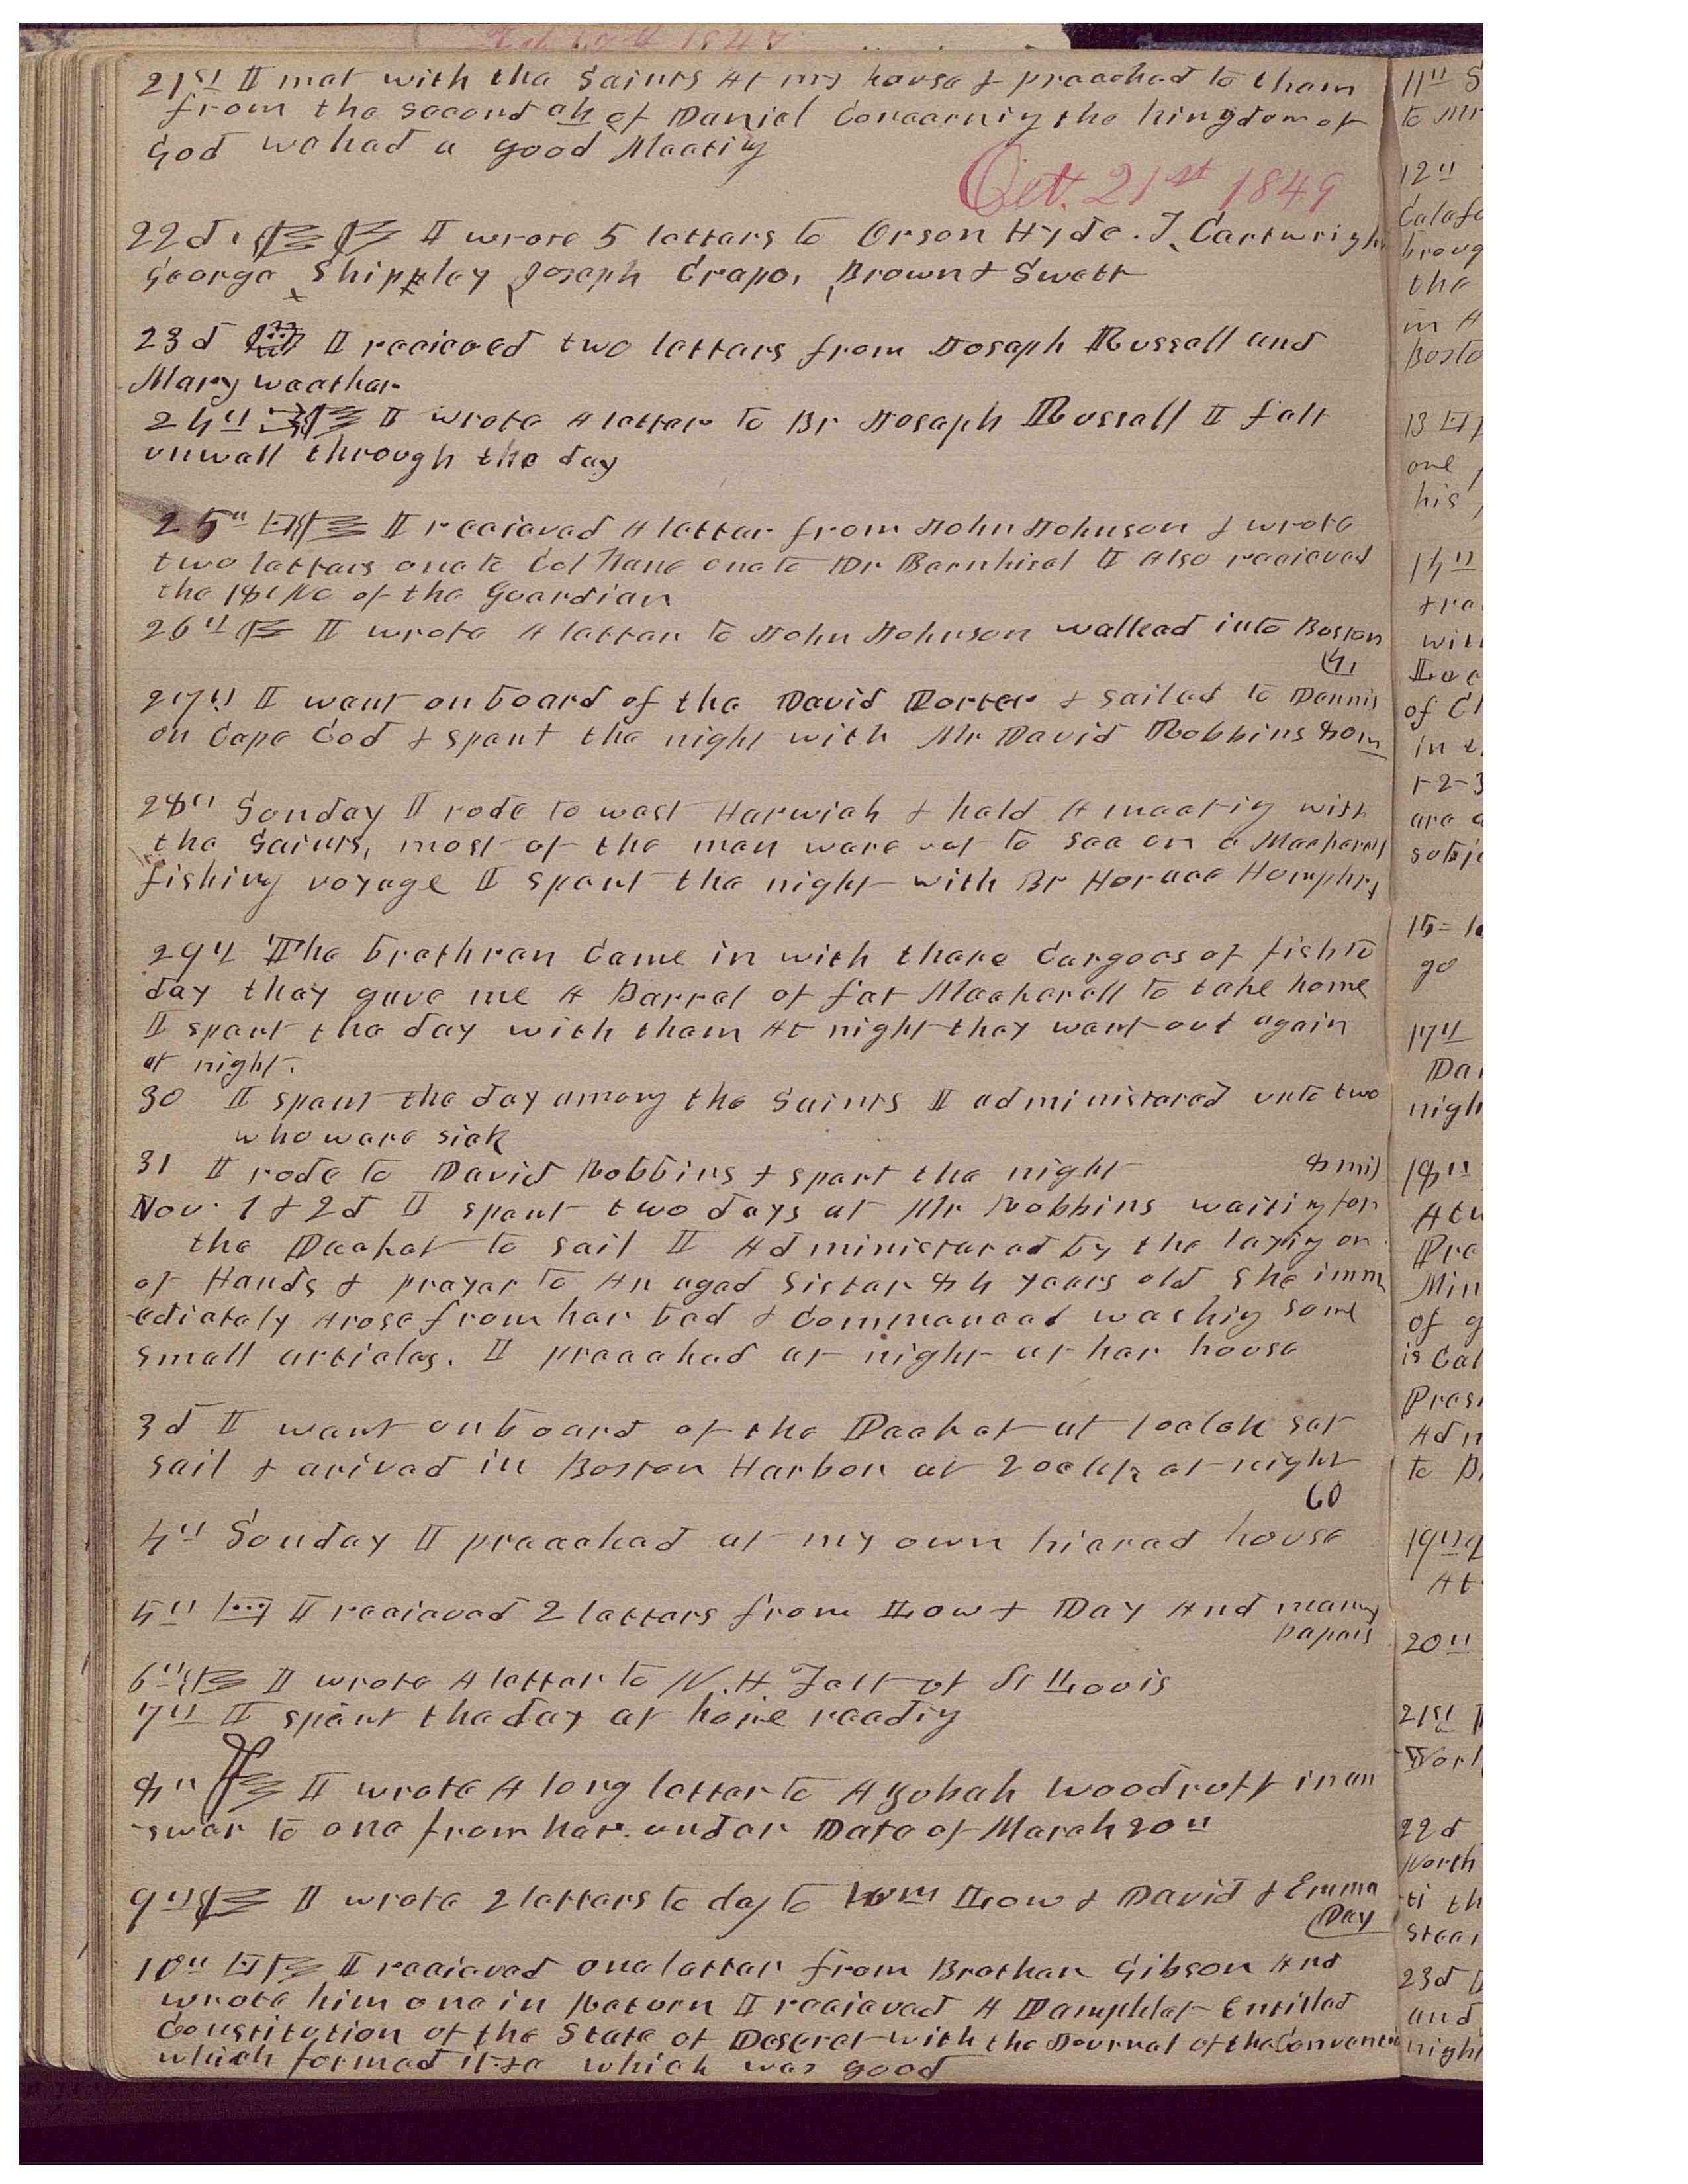 21st I met with the Saints at my house & preached to them
from the second ch of Daniel Concerning the kingdom of
God we had a good Meeting
Oct. 21st 1849
22d I wrote 5 letters to Orson Hyde. J, Cartwright
George Shippley Joseph Crapo, Brown & Swett
23d I received two letters from Joseph Russell and
Mary weather
24th I wrote A letter to Br Joseph Russell I felt
unwell through the day
25th I recieved A letter from John Johnson & wrote
two letters one to Col Kane one to Dr Bernhisel I Also recieved
the 18th No of the Guardian
26th I wrote A letter to John Johnson walked into Boston
4,
27th I went on board of the David Porter & Sailed to Dennis
on Cape Cod & spent the night with Mr David Robbins 80m
28th Sunday I rode to west Harwich & held A meeting with
the Saints, most of the men were out to see on a Mackerel
fishing voyage I spent the night with Br Horace Humphry
29th The brethren Came in with there Cargoes of fish to
day they gave me A Barrel of fat Mackerell to take home
I spent the day with them At night they went out again
at night.
30 I spent the day among the Saints I administered unto two
who were sick
31 I rode to David Robbins & spent the night 8 mils
Nov. 1 & 2d I spent two days at Mr Robbins waiting for
the Packet to sail I Administered by the laying on
of Hands & prayer to An aged Sister 84 years old She imm
-ediately Arose from her bed & Commenced washing some
small articles. I preached at night at her house
3d I went on board of the Packet at 1 oclok set
sail & arived in Boston Harbor at 2 oclk at night
60
4th Sunday I preached at my own hiered house
5th I recieved 2 letters from Low & Day And many
papers
6th I wrote A letter to N. H. Felt of St Louis
7th I spent the day at home reading
8th I wrote A long letter to Azubah Woodruff in an
-swer to one from her. under Date of March 20th
9th I wrote 2 letters to day to Wm Low & David & Emma
Day
10th I recieved one letter from Brother Gibson And
wrote him one in Return I recieved A Pamphlet Entitled
Constitution of the State of Deseret with the Journal of the Convention
which formed it &c which was good